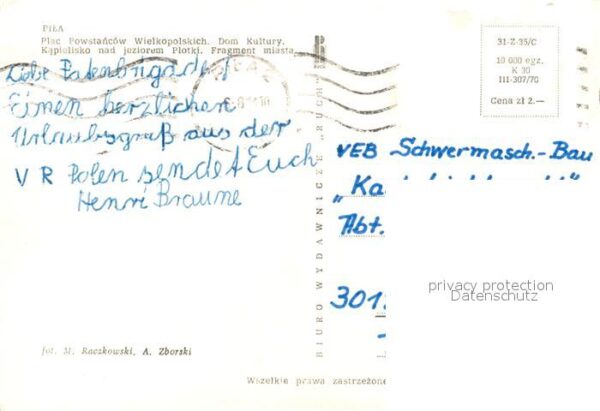 PIŁA
Plac Powstańców Wielkopolskich. Dom Kultury.
Kąpielisko nad jeziorem Płotki. Fragment miasta
Liebe Patenbrigade!
Einen herzlichen
Urlaubsgruß aus der
V R Polen sendet Euch
Henri Braune
fot. M. Raczkowski, A. Zborski
BIURO WYDAWNICZE „RUCH”
31-Z-35/C
10 000 egz.
K 30
III-307/70
Cena zł 2.—
VEB Schwermasch.-Bau
„Ka
Abt.
301
privacy protection
Datenschutz
Wszelkie prawa zastrzeżone